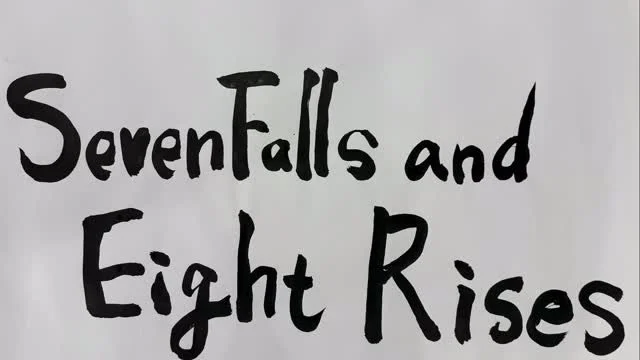 Seven Falls and
Eight Rises